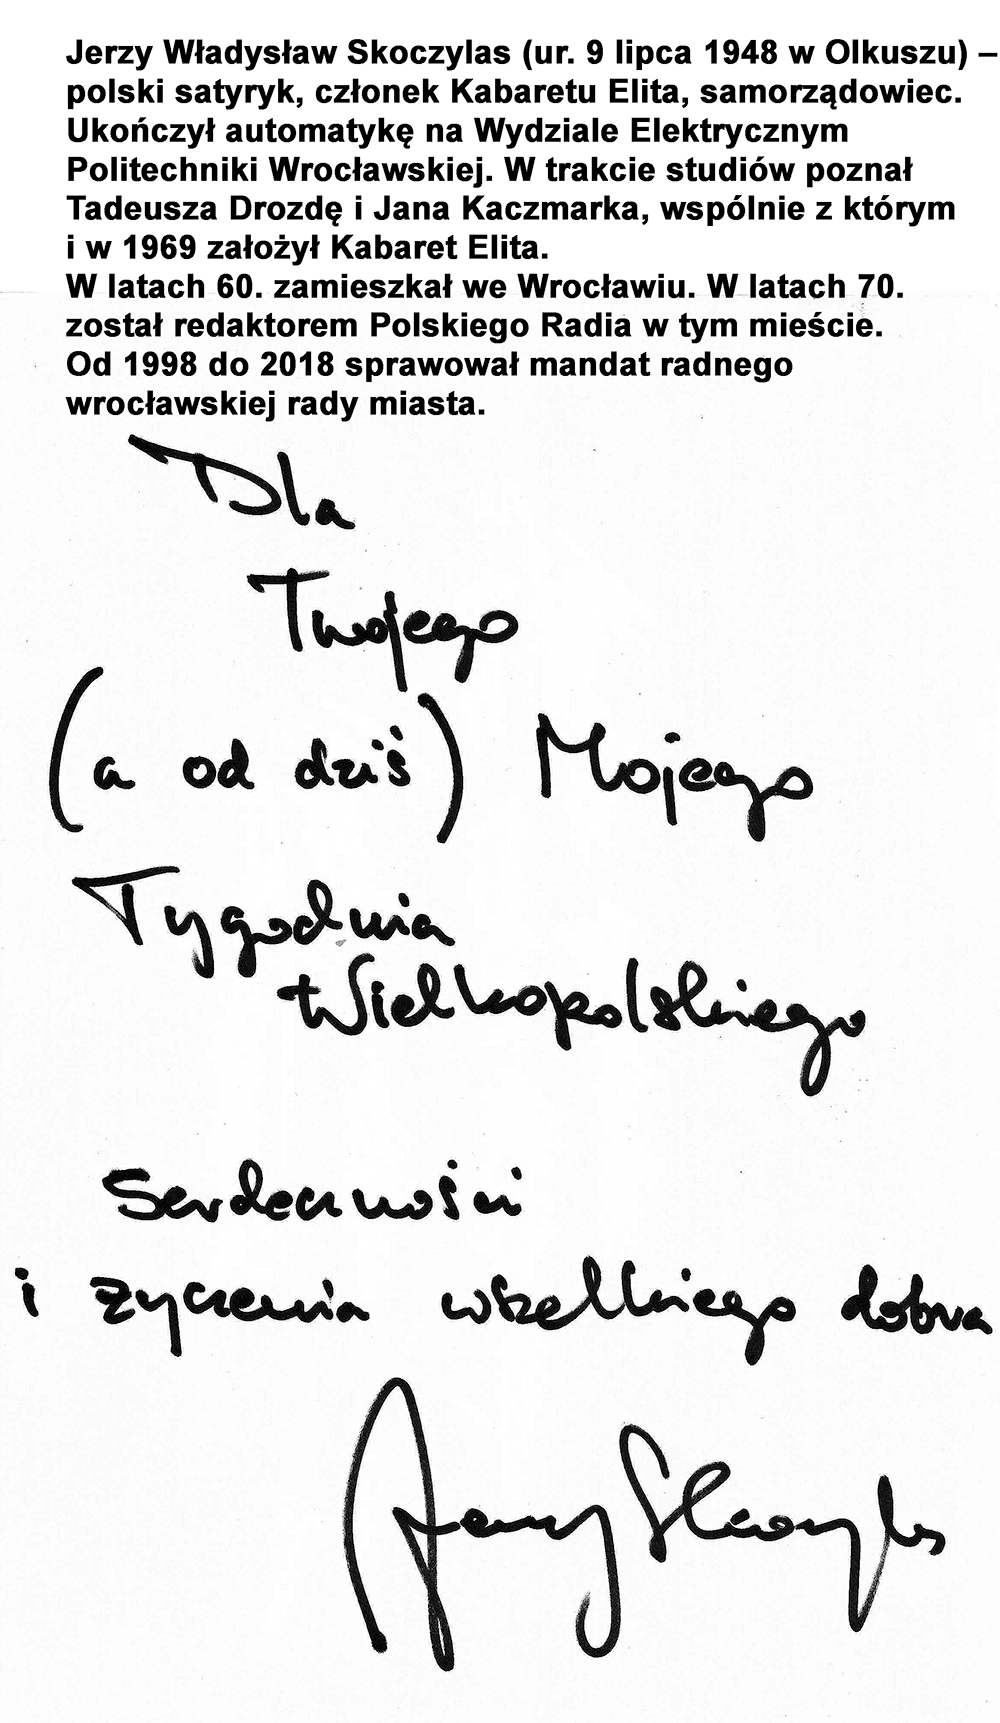 Jerzy Władysław Skoczylas (ur. 9 lipca 1948 w Olkuszu) –
polski satyryk, członek Kabaretu Elita, samorządowiec.
Ukończył automatykę na Wydziale Elektrycznym
Politechniki Wrocławskiej. W trakcie studiów poznał
Tadeusza Drozdę i Jana Kaczmarka, wspólnie z którym
i w 1969 założył Kabaret Elita.
W latach 60. zamieszkał we Wrocławiu. W latach 70.
został redaktorem Polskiego Radia w tym mieście.
Od 1998 do 2018 sprawował mandat radnego
wrocławskiej rady miasta.
Dla
Twojego
(a od dziś) Mojego
Tygodnia
Wielkopolskiego
Serdeczności
i życzenia wszelkiego dobra
Jerzy Skoczylas